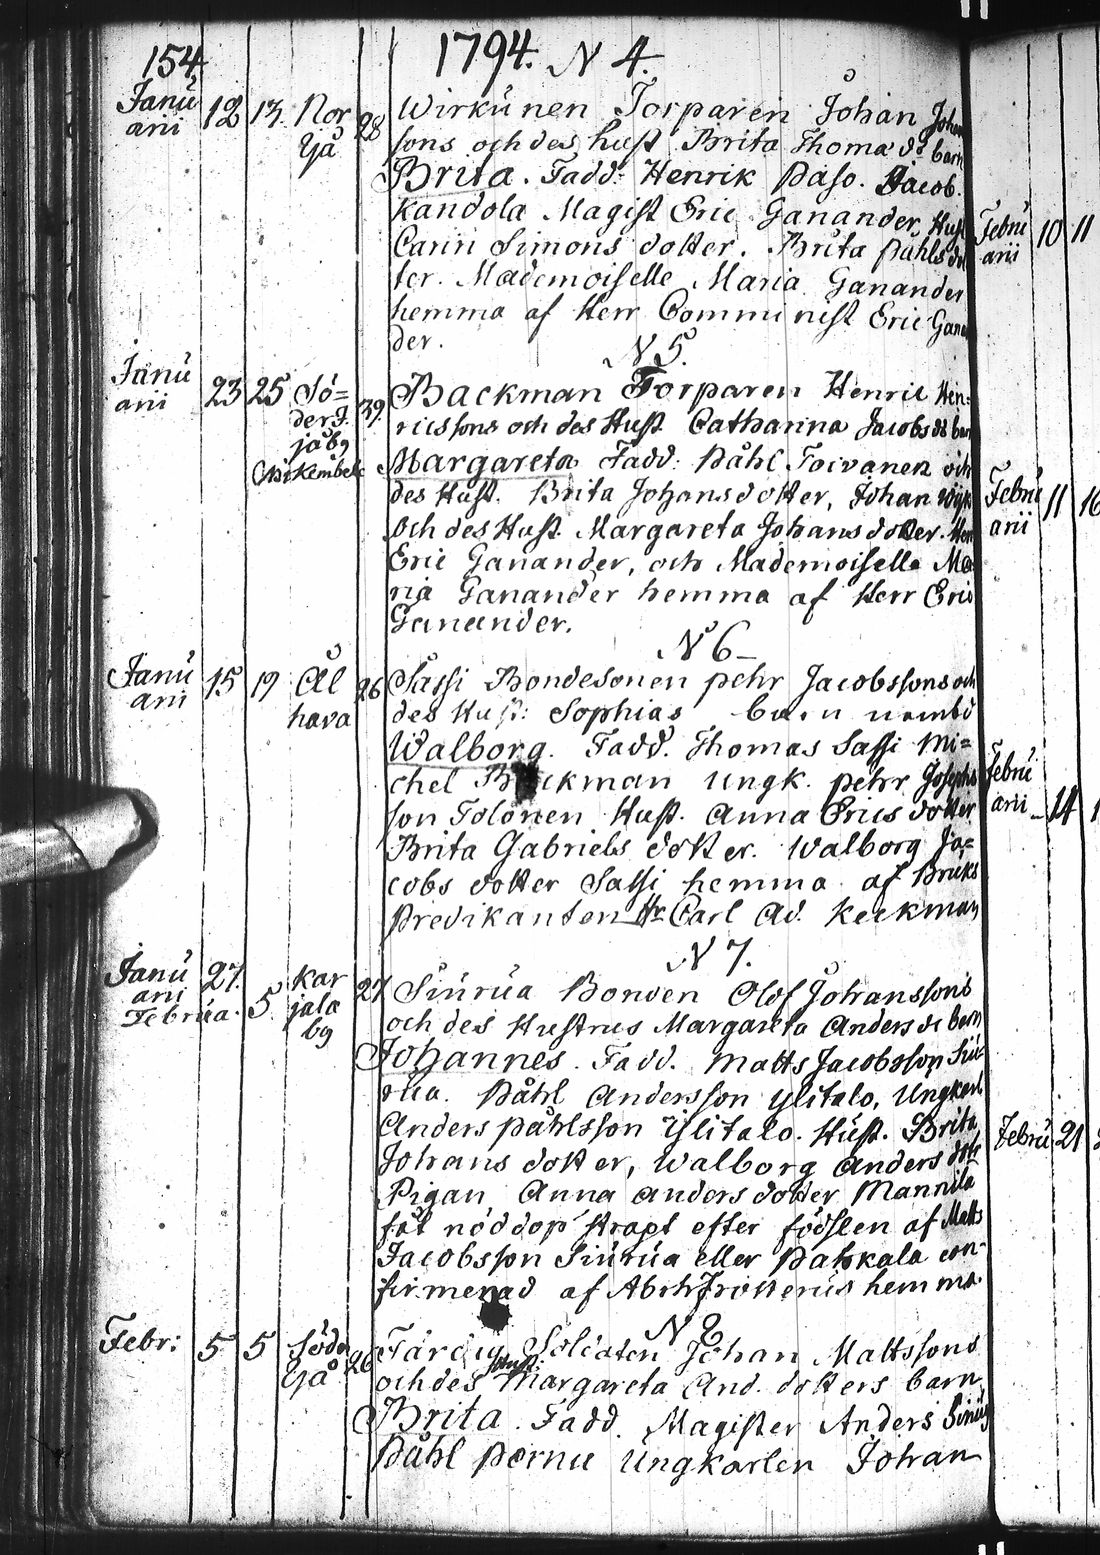 154.
1794. N 4.
Januarii 12 13. Nor Yå 28 Wirkúnen Torparen Johan Johans
sons och des hust. Brita Thoma dr barn
Brita. Fadd: Henrik Paso. Jacob
Kandola Magist Eric Ganander, Hust
Carin Simons dotter. Brita Påhls dot
ter. Mademoiselle Maria Ganander
hemma af Herr Comminist Eric Ganan
der.
N 5.
Januarii 23 25 Sö=
der Y.
jåby 39. Backman Torparen Henric Hen=
ricssons och des Hust. Catharina Jacobs dr barn
Margareta Fadd: Påhl Toivanen och
des Hust. Brita Johansdotter, Johan
och des Hust. Margareta Johans dotter. Herr
Eric Ganander, och Mademoiselle Ma
ria Ganander hemma af Herr Eric
Ganander.
N 6
Januarii 15 19 Ål
hava 26 Sassi Bondesonen pehr Jacobssons och
des Hust: Sophias barn nembd
Walborg. Fadd. Thomas Sassi Mi=
chel Backman Ungk. pehr Josephs
son Tolonen Hust. Anna Erics dotter
Brita Gabriels dotter. Walborg Ja=
cobs dotter Sassi hemma af Brúks
Predikanten Hr Carl Ad. Keckman
N 7.
Januarii 27.
Februa. 5 Kar
jala
by 27 Siúrúa Bonden Olof Johanssons
och des Hustrus Margareta Anders dr barn
Johannes. Fadd. Matts Jacobsson Siú=
rúa. Påhl Andersson Ylitalo, Ungkarl
Anders påhlsson Ylitalo. Húst. Brita
Johans dotter, Walborg Anders dotr
Pigan Anna Anders dotter Mannila
fåt nöddop strapt efter födslen af Matts
Jacobsson Siúrúa eller Pahkala con=
firmerad af Abrh Frosterus hemma.
N 8
Febr: 5 5 Söder
Yå 26 Färdig Soldaten Johan Mattssons
och des Hust: Margareta And. dotters barn
Brita. Fadd. Magister Anders
Påhl Pernu Ungkarlen Johan
Febru
arii 10 11
Febru
arii 11 16
Febru
arii 14
Febru 21